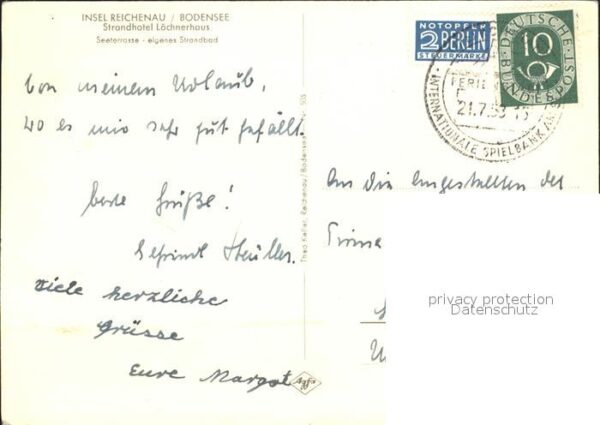 INSEL REICHENAU / BODENSEE
Strandhotel Löchnerhaus
Seeterrasse - eigenes Strandbad
Von meinem Urlaub,
wo es mir sehr gut gefällt.
beste Grüße!
viele herzliche
Grüsse
Eure Margot
Agfa
NOTOPFER
2 BERLIN
STEUERMARKE
DEUTSCHE BUNDESPOST
10
21.7.53
INTERNATIONALE SPIELBANK
An die Angestellten der
Firma
privacy protection
Datenschutz